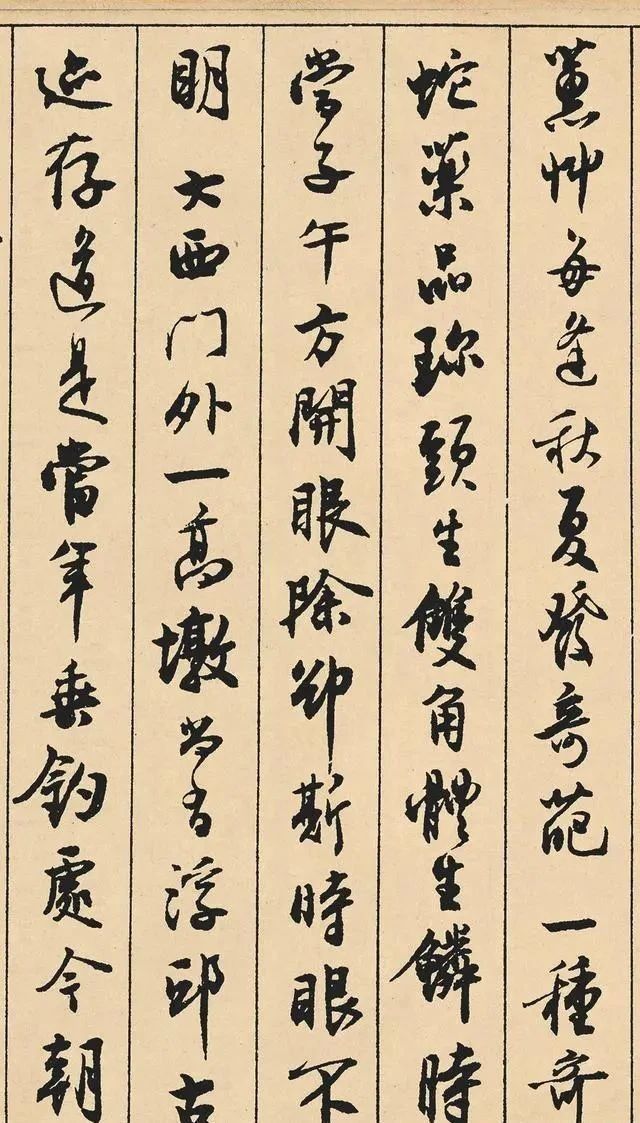 蕙艸每逢秋夏發奇葩一種奇
蛇藥品珎頭生雙角體生鱗時
當子午方開眼除卻斯時眼不
明大西門外一高墩尚有浮邱古
迹存道是當年垂釣處今朝